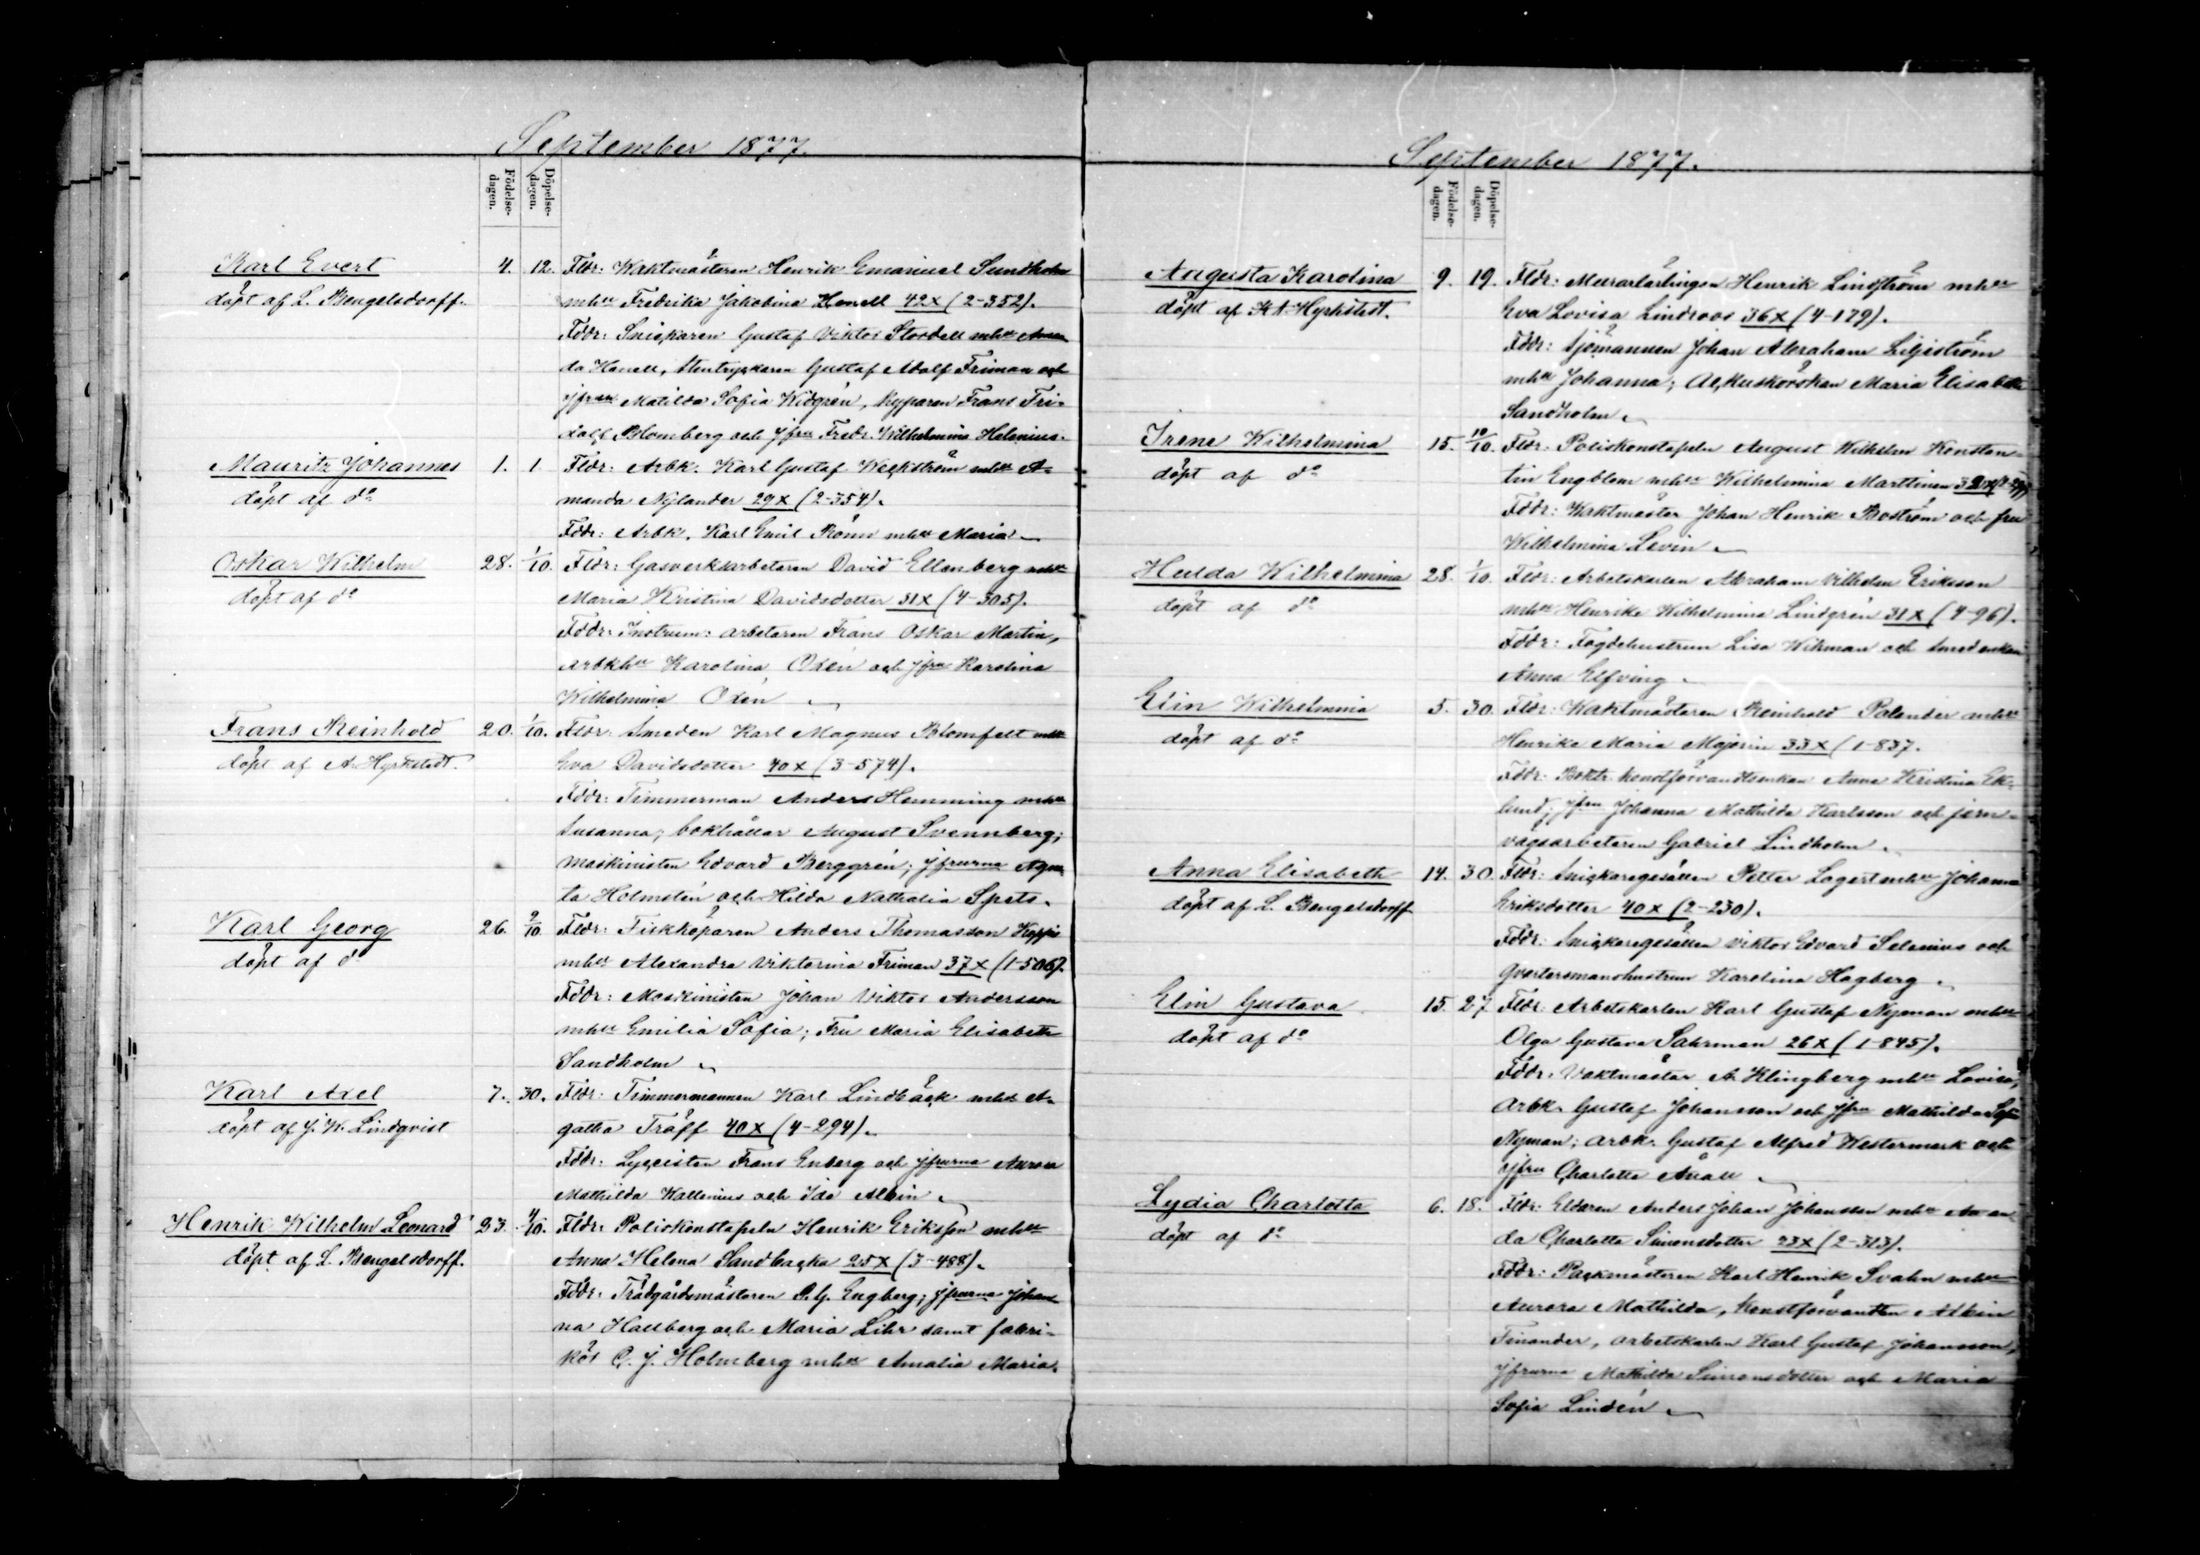 September 1877.
Födelse-
dagen.
Döpelse-
dagen.
Karl Evert 4. 12. Fldr: Waktmästaren Henrik Emanuel Sundholm
döpt af L. Bengelsdorff. mhu Fredrika Jakobina Honell 42x (2-352).
Fddr: Snickaren Gustaf Viktor Stordell mhu Aman
da Hanell, Stentryckaren Gustaf Adolf Friman och
jfrun Matilda Sofia Widgrén, kyparen Frans Fri-
dolf Blomberg och jfru Fredr. Wilhelmina Helenius.
Mauritz Johannes 1. 1 Fldr: Arbk: Karl Gustaf Weckström mhu A-
döpt af do manda Nylander 29x (2-354).
Fddr: Arbk. Karl Emil Rönn mhu Maria
Oskar Wilhelm 28. 1/10. Fldr: Gasverksarbetaren David Ellenberg mhu
döpt af do Maria Kristina Davidsdotter 31x (4-305).
Fddr: Instrum: arbetaren Frans Oskar Martin,
Arbkhu Karolina Oxén och jfru Karolina
Wilhelmina Oxén
Frans Reinhold 20. 1/10. Fldr: Smeden Karl Magnus Blomfelt mhu
döpt af A. Hyrkstedt. Eva Davidsdotter 40x (3-574).
Fddr: Timmerman Anders Hemming mhu
Susanna; bokhållar August Svennberg;
maskinisten Edvard Berggrén; jfrurna Aga
ta Holmstén och Hilda Nathalia Spets.
Karl Georg 26. 2/10. Fldr: Fiskköparen Anders Thomasson
döpt af do mhu Alexandra Viktorina Friman 37x (1-506).
Fddr: Maskinisten Johan Viktor Andersson
mhu Emilia Sofia; Fru Maria Elisabeth
Sandholm
Karl Axel 7. 30. Fldr: Timmermannen Karl Lindbäck mhu A-
döpt af J. W. Lindqvist gatha Träff 40x (4-294).
Fddr: Lyceisten Frans Enberg och jfrurna Aurora
Mathilda Wallenius och Ida Albin
Henrik Wilhelm Leonard 23. 4/10. Fldr: Poliskonstapeln Henrik Eriksson mhu
döpt af L. Bengelsdorff. Anna Helena Sandbacka 25x (3-488).
Fddr: Trädgårdsmästaren P. G. Engberg; jfrurna Johan
na Hallberg och Maria Lihr samt fabri-
kör C. J. Holmberg mhu Amalia Maria.
September 1877.
Födelse-
dagen.
Döpelse-
dagen.
Augusta Karolina 9. 19. Fldr: Murarlärlingen Henrik Lindström mhu
döpt af A. Hyrkstedt. Eva Lovisa Lindroos 36x (4-179).
Fddr: Sjömannen Johan Abraham Liljeström
mhu Johanna; Ackuskörskan Maria Elisabeth
Sandholm
Irene Wilhelmina 15. 10/10. Fldr: Poliskonstapeln August Wilhelm Konstan-
döpt af do tin Engblom mhu Wilhelmina Marttinen
Fddr: Waktmäster Johan Henrik Boström och fru
Wilhelmina Levin
Hulda Wilhelmina 28. 1/10. Fldr: Arbetskarlen Abraham Vilhelm Eriksson
döpt af do mhu Henrika Wilhelmina Lindgrén 31x (4-96).
Fddr: Fogdehustrun Lisa Wikman och smedenkan
Anna Elfving.
Elin Wilhelmina 5. 30. Fldr: Waktmästaren Reinhold Polander mhu
döpt af do Henrika Maria Majorin 33x (1-837.
Fddr: Boktr. konstförvandtsenkan Anna Kristina Ek-
lund; jfru Johanna Mathilda Karlsson och jern-
vägsarbetaren Gabriel Lindholm.
Anna Elisabeth 14. 30. Fldr: Snickaregesällen Petter Lagert mhu Johanna
döpt af L. Bengelsdorff Eriksdotter 40x (2-230).
Fddr: Snickaregesällen Viktor Edvard Selenius och
Qvartersmanshustrun Karolina Hagberg
Elin Gustava 15. 27 Fldr: Arbetskarlen Karl Gustaf Nyman mhu
döpt af do Olga Gustava Sahrman 26x (1-845).
Fddr: Vaktmäster A. Klingberg mhu Lovisa;
Arbk. Gustaf Johansson och jfru Mathilda
Nyman; arbk. Gustaf Alfred Westermark och
jfru Charlotta
Lydia Charlotta 6. 18. Fldr: Eldaren Anders Johan Johansson mhu Aman
döpt af do da Charlotta Simonsdotter 23x (2-313).
Fddr: Packmästaren Karl Henrik Svahn mhu
Aurora Mathilda, konstförvandten Albin
Finander, arbetskarlen Karl Gustaf Johansson,
jfrurna Mathilda Simonsdotter och Maria
Sofia Lindén